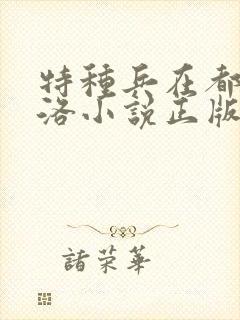 特種兵在都
洛小說正版
諸荣華